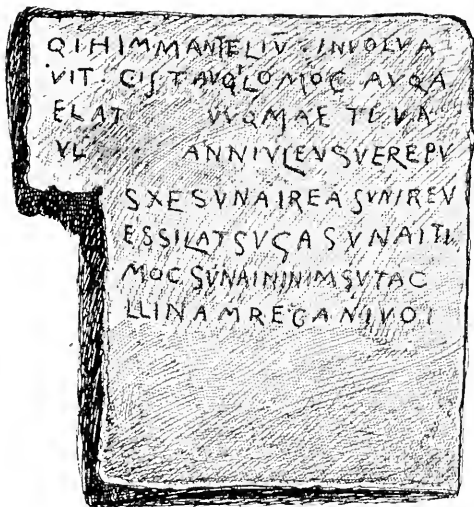 QIHIMMANTELIV̅ · INVOLVA
VIT · CIST AVQLOMOC AVQA
ELAT VVQMAE TLVA
VL ANNIVLEVSVEREPV
SXESVNAIREASVNIREV
ESSILATSVGASVNAITI
MOCSVNAININIMSVTAC
LLINAMREGANIVOI